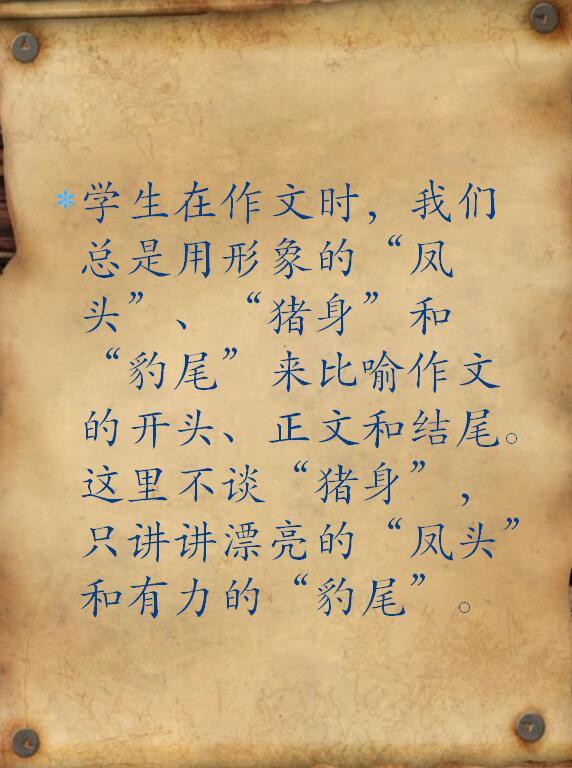 *学生在作文时，我们
总是用形象的“凤
头”、“猪身”和
“豹尾”来比喻作文
的开头、正文和结尾。
这里不谈“猪身”，
只讲讲漂亮的“凤头”
和有力的“豹尾”。